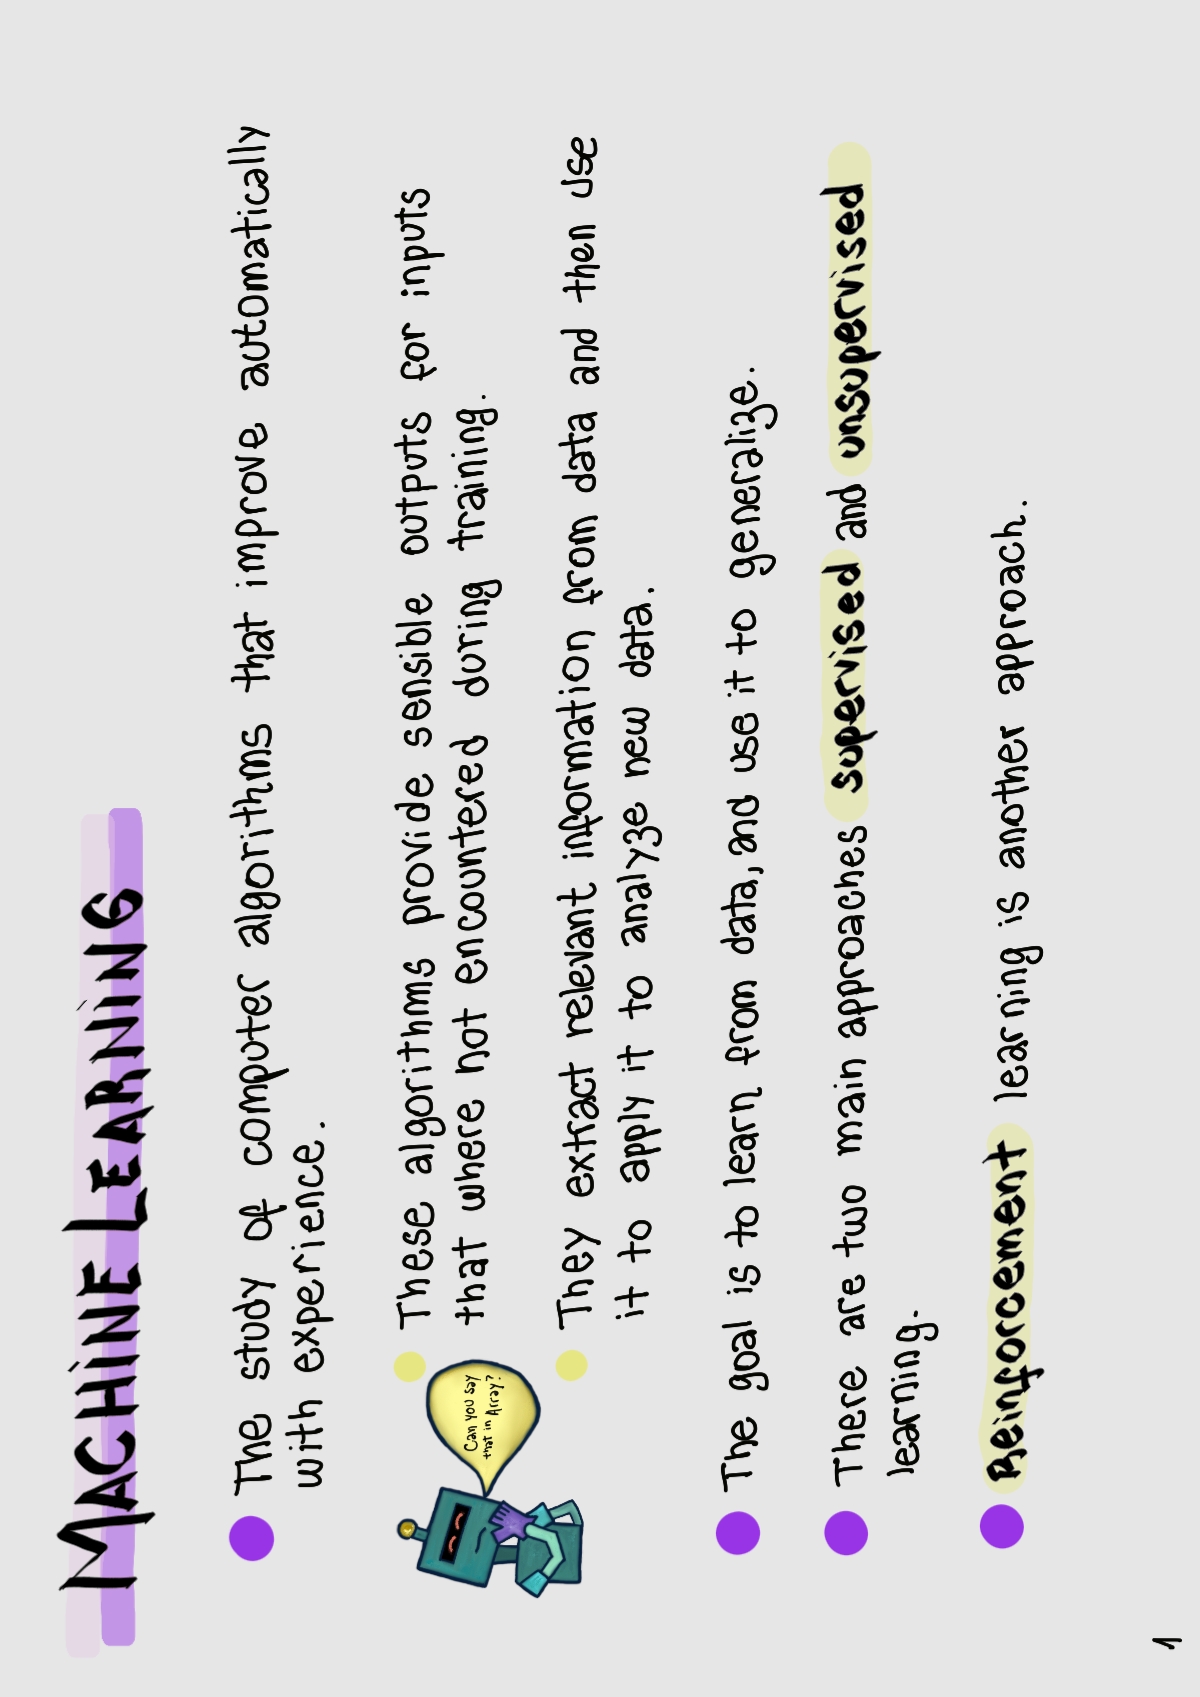 MACHINE LEARNING
The study of computer algorithms that improve automatically
with experience.
These algorithms provide sensible outputs for inputs
that where not encountered during training.
Can you say
that in Array?
They extract relevant information from data and then use
it to apply it to analyze new data.
The goal is to learn from data, and use it to generalize.
There are two main approaches supervised and unsupervised
learning.
Reinforcement learning is another approach.
1